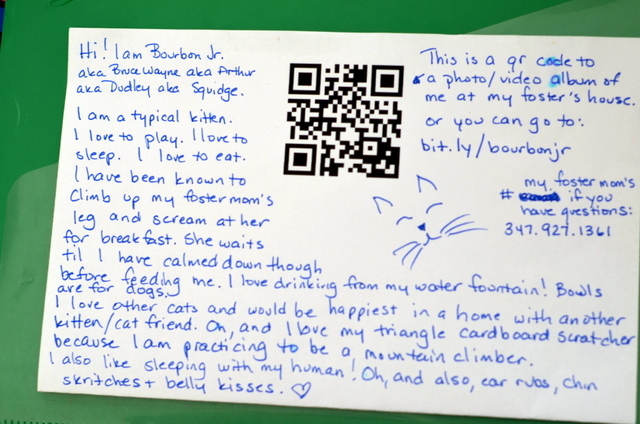 Hi! I am Bourbon Jr.
aka Bruce Wayne aka Arthur
aka Dudley aka Squidge.
I am a typical kitten.
I love to play. I love to
sleep. I love to eat.
I have been known to
climb up my foster mom's
leg and scream at her
for breakfast. She waits
til I have calmed down though
before feeding me. I love drinking from my water fountain! Bowls
are for dogs.
I love other cats and would be happiest in a home with another
kitten/cat friend. Oh, and I love my triangle cardboard scratcher
because I am practicing to be a mountain climber.
I also like sleeping with my human! Oh, and also, ear rubs, chin
skritches + belly kisses. ♡
This is a qr code to
a photo/video album of
me at my foster's house.
or you can go to:
bit.ly/bourbonjr
my foster mom's
# if you
have questions:
347.927.1361